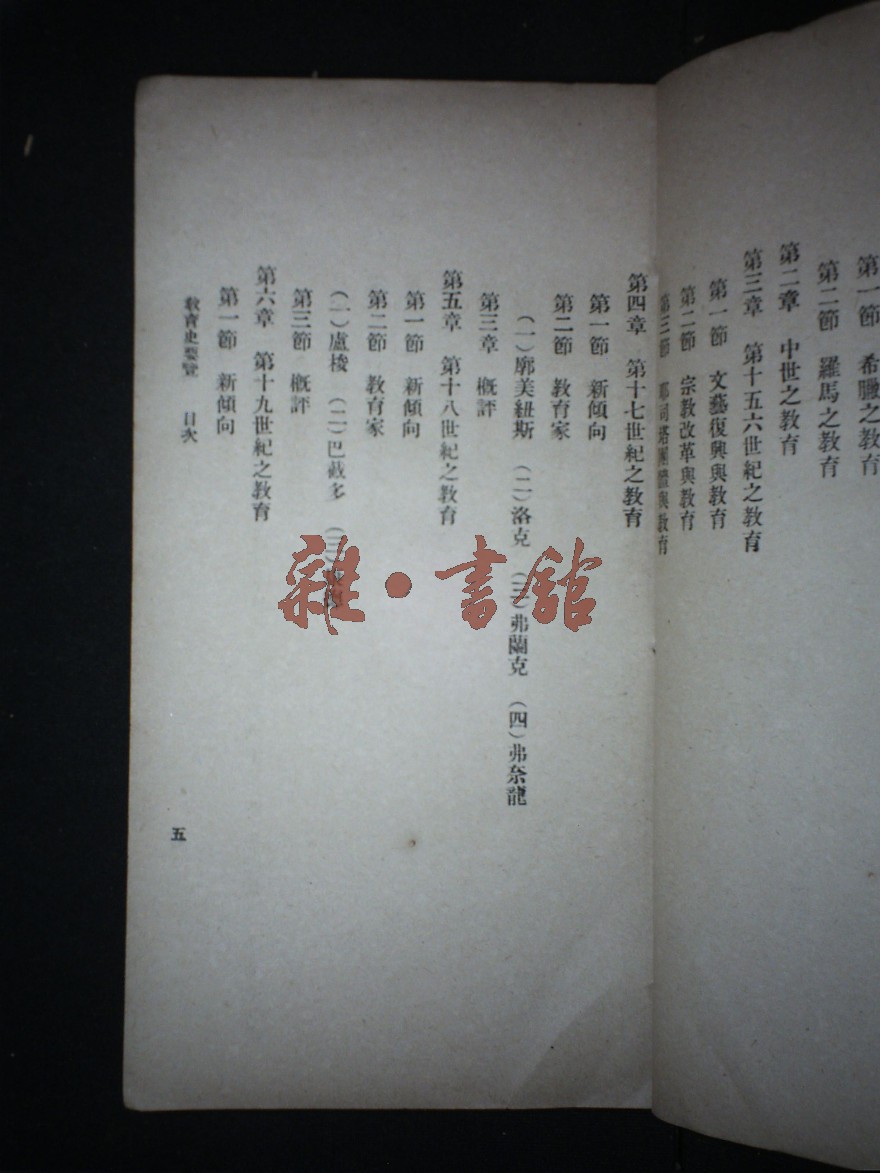 第一節 希臘之教育
第二節 羅馬之教育
第二章 中世之教育
第三章 第十五六世紀之教育
第一節 文藝復興與教育
第二節 宗教改革與教育
第三節 司塔團體與教育
第四章 第十七世紀之教育
第一節 新傾向
第二節 教育家
(一)廓美紐斯 (二)洛克 (三)弗蘭克 (四)弗奈龍
第三章 概評
第五章 第十八世紀之教育
第一節 新傾向
第二節 教育家
(一)盧梭 (二)巴戴多 (三)
第三節 概評
第六章 第十九世紀之教育
第一節 新傾向
教育史要覽 目次
五
雜·書館